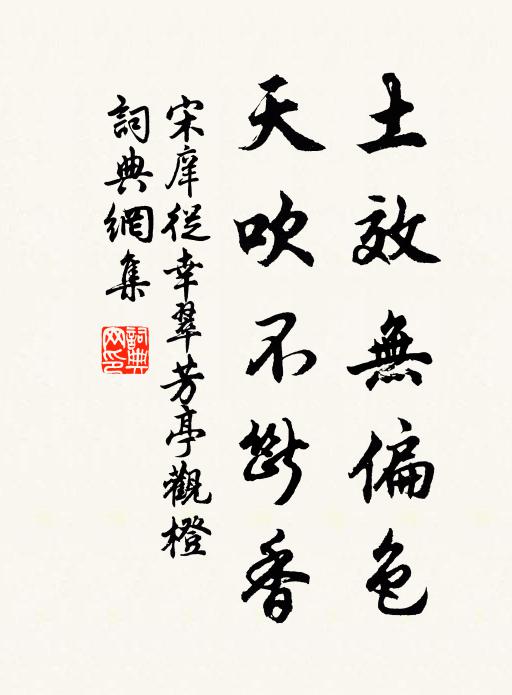 土效無偏色
天吹不斷香
宋庠從幸翠芳亭觀橙
詞典網集
詞典網印